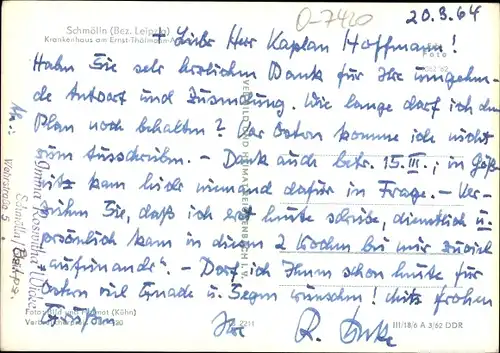 O-7420
20.3.64
Schmölln (Bez. Leipzig)
Krankenhaus am Ernst-Thälmann-
Liebe Herr Kaplan Hoffmann!
Foto
Habn Sie sehr herzlichen Dank für Ihre umgehen-
de Antwort und Zusendung. Wie lange darf ich den
Plan noch behalten? Vor Ostern komme ich nicht
zum Ausschreiben. – Dank auch betr. 15.III.; in Göß-
nitz kam leider niemand dafür in Frage. – Ver-
zeihen Sie, daß ich erst heute schreibe, dienstlich u.
persönlich kam in diesen 2 Wochen bei mir zuviel
"aufeinander". – Darf ich Ihnen schon heute für
Ostern viel Gnade u. Segen wünschen! Mit frohen
Grüßen Ihre R.
Foto: Bild und Heimat (Kühn)
2211
III/18/6 A 3/62 DDR
VERLAG BILD UND HEIMAT REICHENBACH I. V.
Schmölln / Bez. Lpz.